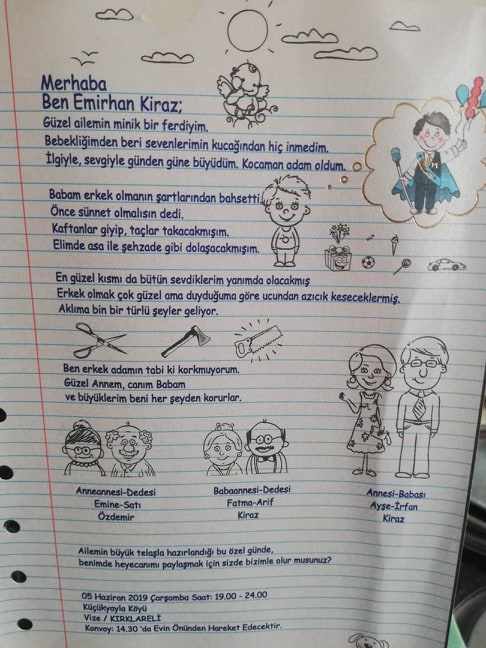 Merhaba
Ben Emirhan Kiraz;
Güzel ailemin minik bir ferdiyim.
Bebekliğimden beri sevenlerimin kucağından hiç inmedim.
İlgiyle, sevgiyle günden güne büyüdüm. Kocaman adam oldum.
Babam erkek olmanın şartlarından bahsetti.
Önce sünnet olmalısın dedi.
Kaftanlar giyip, taçlar takacakmışım.
Elimde asa ile şehzade gibi dolaşacakmışım.
En güzel kısmı da bütün sevdiklerim yanımda olacakmış
Erkek olmak çok güzel ama duyduğuma göre ucundan azıcık keseceklermiş.
Aklıma bin bir türlü şeyler geliyor.
Ben erkek adamın tabi ki korkmuyorum.
Güzel Annem, canım Babam
ve büyüklerim beni her şeyden korurlar.
Anneannesi-Dedesi
Emine-Satı
Özdemir
Babaannesi-Dedesi
Fatma-Arif
Kiraz
Annesi-Babası
Ayşe-İrfan
Kiraz
Ailemin büyük telaşla hazırlandığı bu özel günde,
benimde heyecanımı paylaşmak için sizde bizimle olur musunuz?
05 Haziran 2019 Çarşamba Saat: 19.00 - 24.00
Küçükyayla Köyü
Vize / KIRKLARELİ
Konvoy: 14.30 'da Evin Önünden Hareket Edecektir.